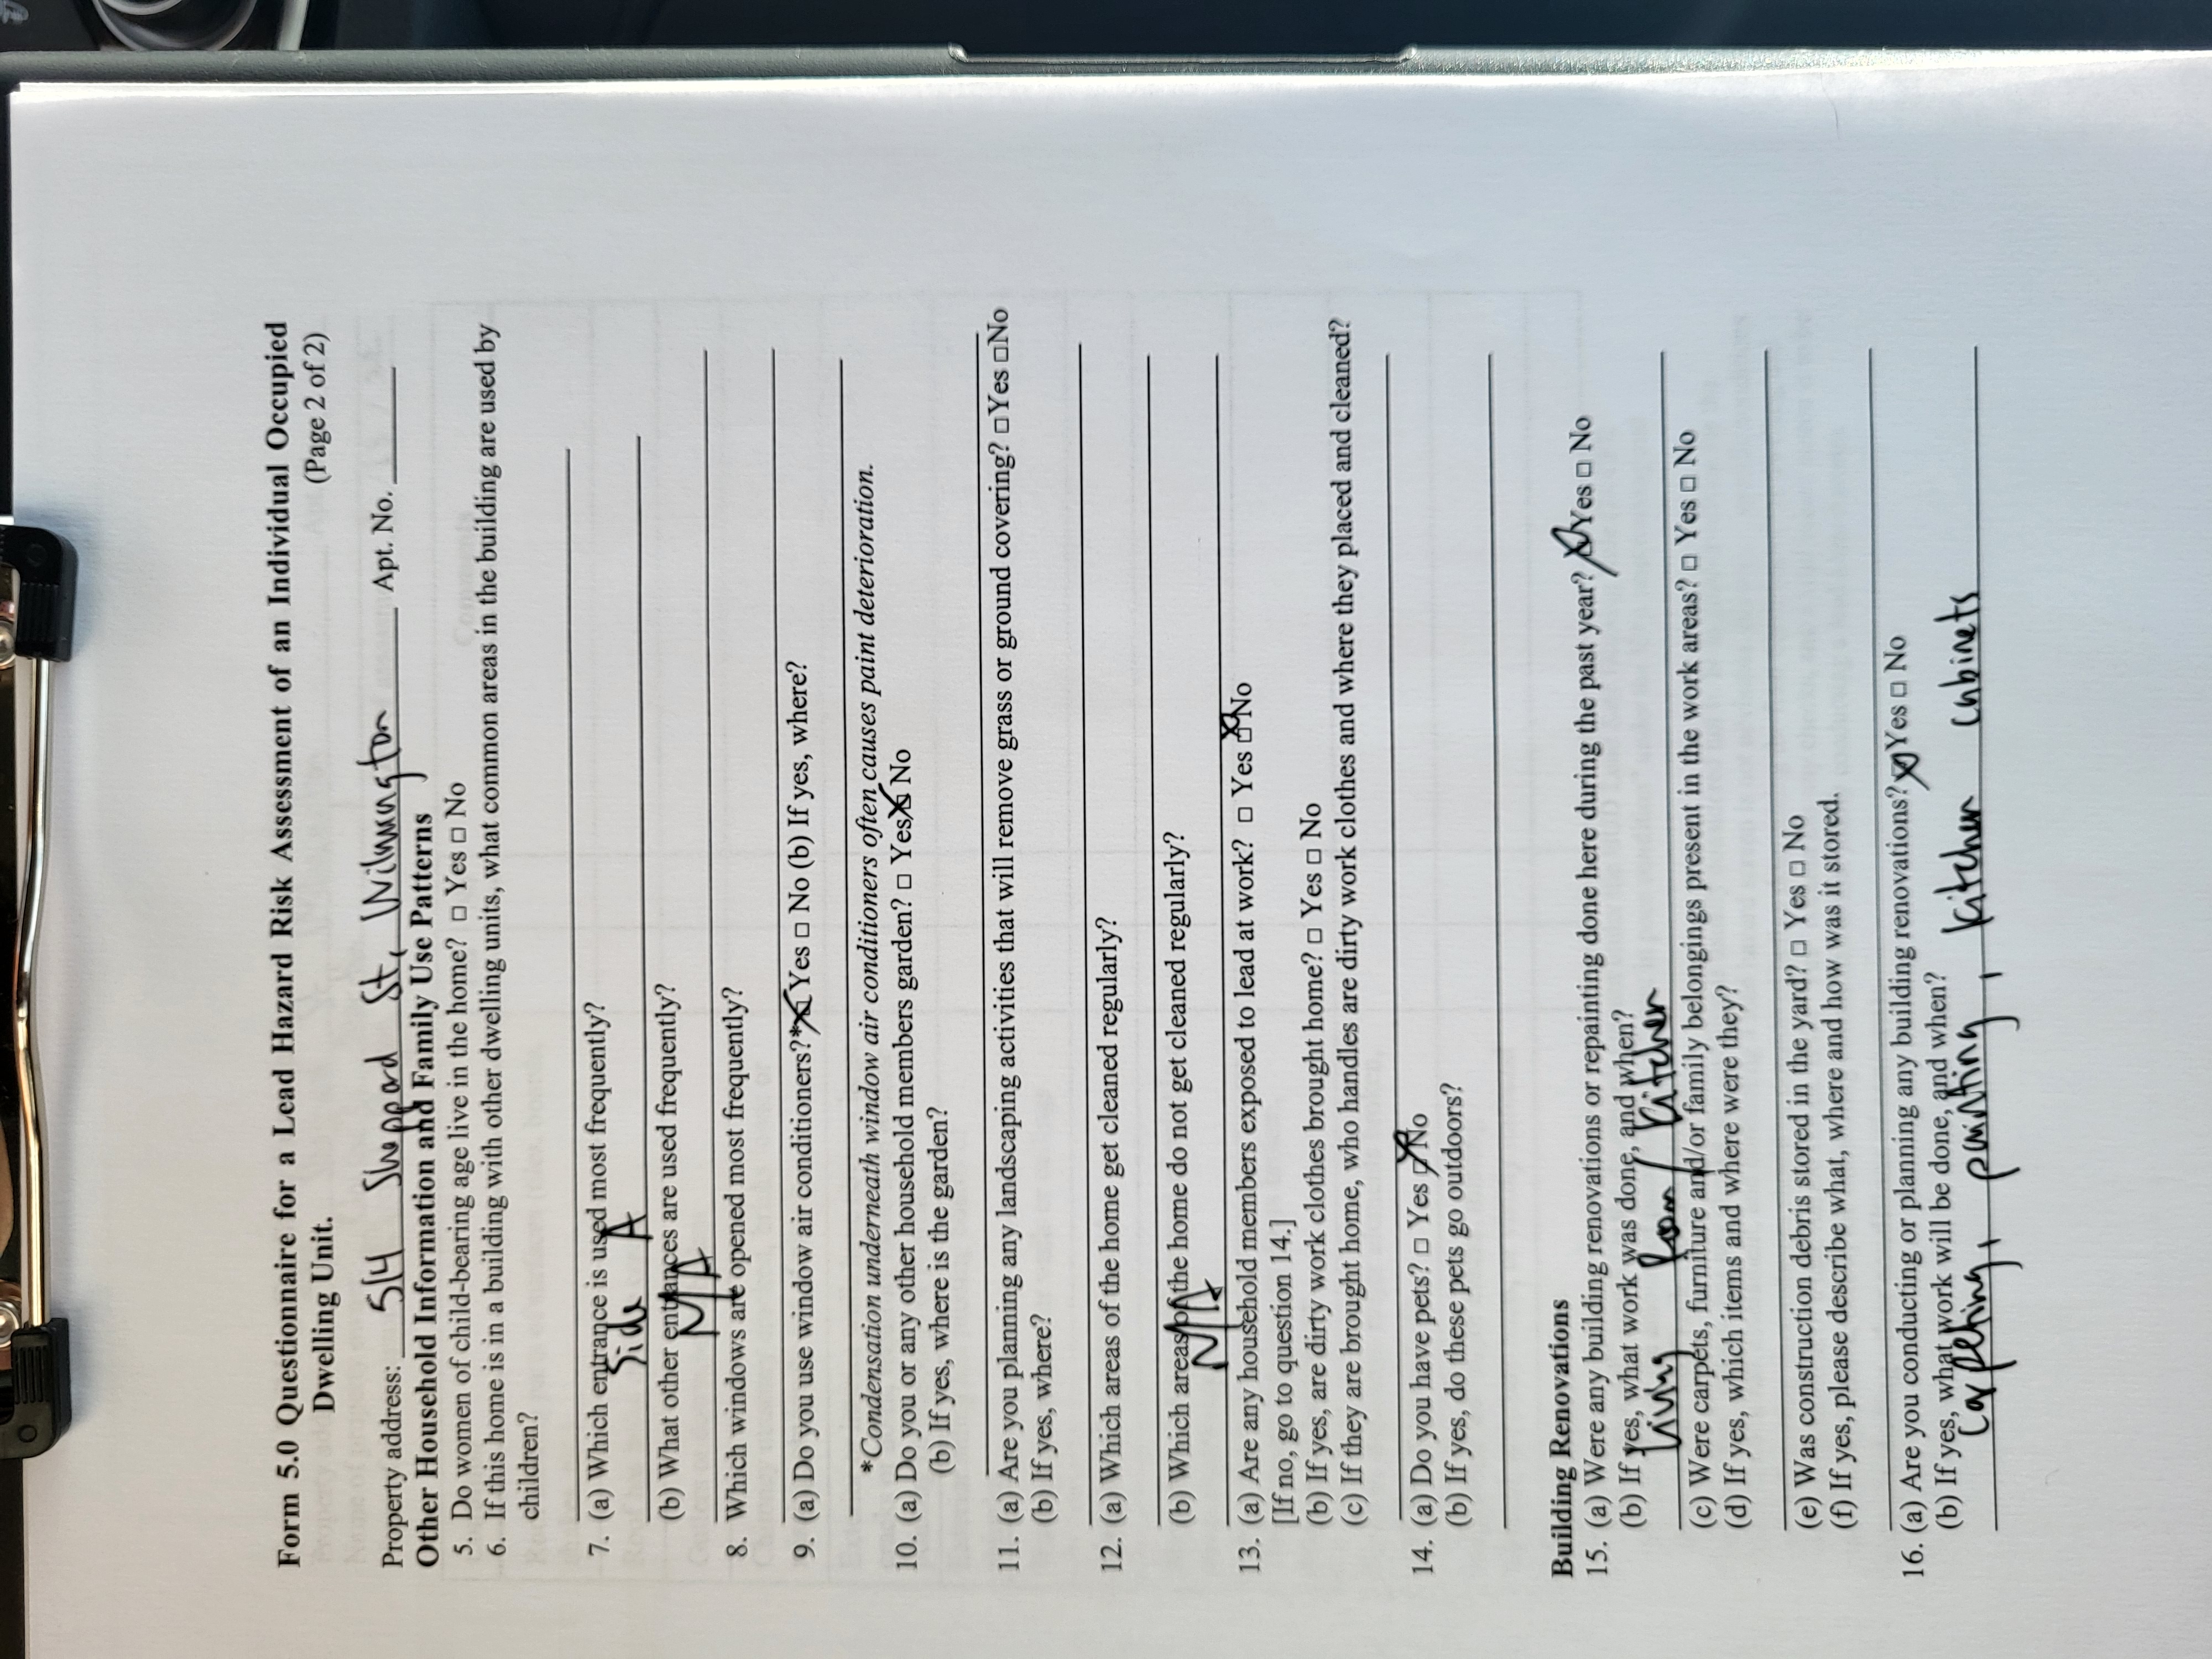 Form 5.0 Questionnaire for a Lead Hazard Risk Assessment of an Individual Occupied
Dwelling Unit. (Page 2 of 2)
Property address: 514 Sheppard St, Wilmington Apt. No.
Other Household Information and Family Use Patterns
5. Do women of child-bearing age live in the home? □ Yes □ No
6. If this home is in a building with other dwelling units, what common areas in the building are used by
children?
7. (a) Which entrance is used most frequently?
Side A
(b) What other entrances are used frequently?
N/A
8. Which windows are opened most frequently?
9. (a) Do you use window air conditioners?* ☒ Yes □ No (b) If yes, where?
*Condensation underneath window air conditioners often causes paint deterioration.
10. (a) Do you or any other household members garden? □ Yes ☒ No
(b) If yes, where is the garden?
11. (a) Are you planning any landscaping activities that will remove grass or ground covering? □ Yes □ No
(b) If yes, where?
12. (a) Which areas of the home get cleaned regularly?
(b) Which areas of the home do not get cleaned regularly?
N/A
13. (a) Are any household members exposed to lead at work? □ Yes ☒ No
[If no, go to question 14.]
(b) If yes, are dirty work clothes brought home? □ Yes □ No
(c) If they are brought home, who handles are dirty work clothes and where they placed and cleaned?
14. (a) Do you have pets? □ Yes ☒ No
(b) If yes, do these pets go outdoors?
Building Renovations
15. (a) Were any building renovations or repainting done here during the past year? ☒ Yes □ No
(b) If yes, what work was done, and when?
Living Room / Kitchen
(c) Were carpets, furniture and/or family belongings present in the work areas? □ Yes □ No
(d) If yes, which items and where were they?
(e) Was construction debris stored in the yard? □ Yes □ No
(f) If yes, please describe what, where and how was it stored.
16. (a) Are you conducting or planning any building renovations? ☒ Yes □ No
(b) If yes, what work will be done, and when?
Carpeting, painting, kitchen cabinets